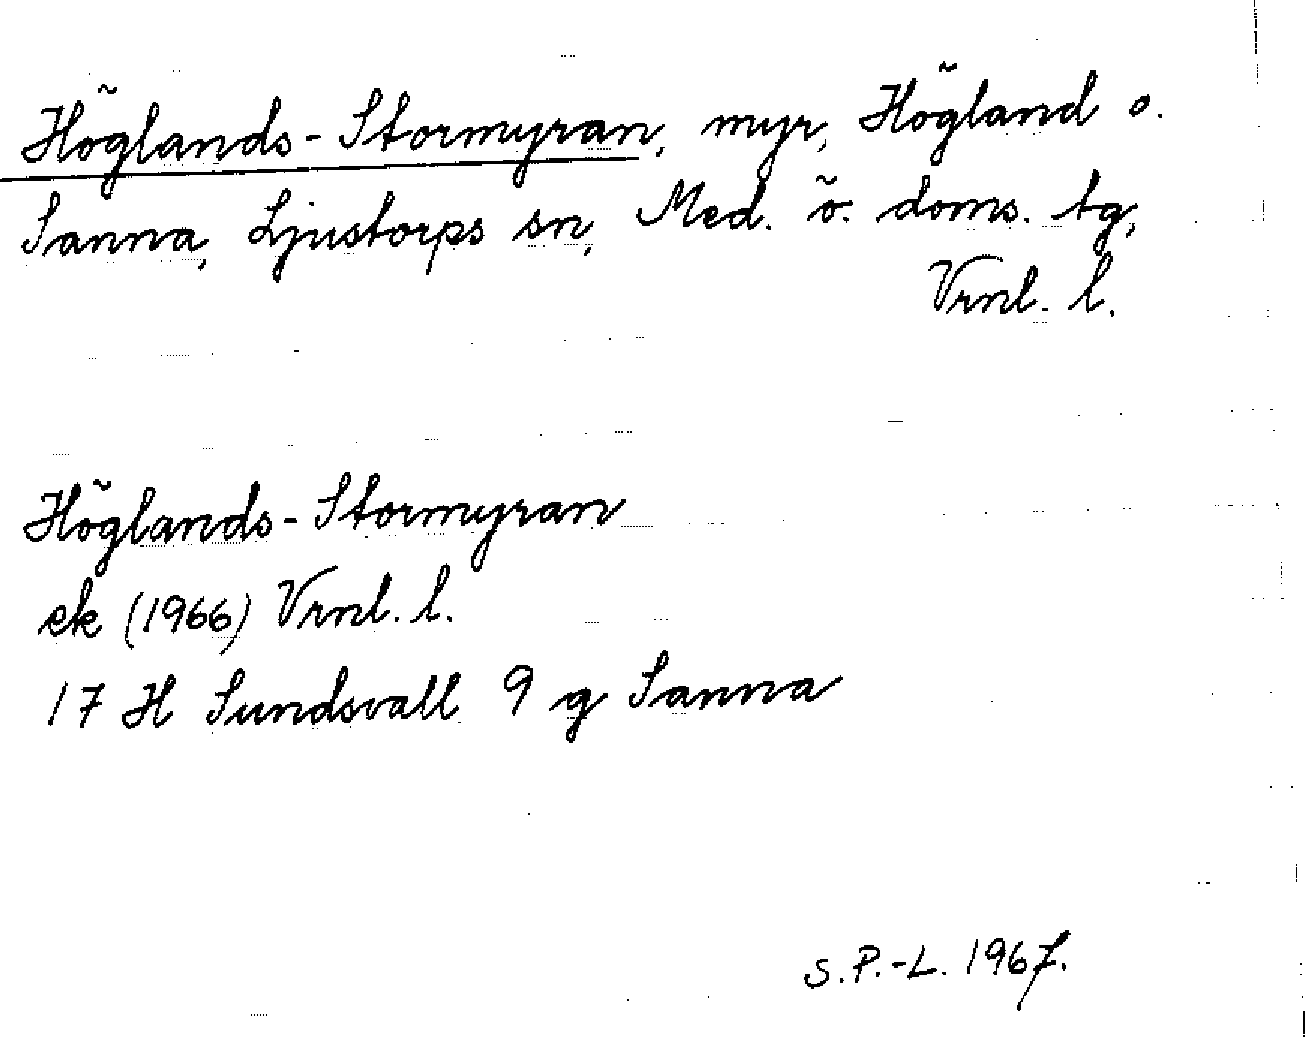 Höglands-Stormyran, myr, Högland o.
Sanna, Ljustorps sn, Med. ö. doms. tg,
Vrnl. l.
Höglands-Stormyran
ek (1966) Vrnl. l.
17 H Sundsvall 9 g Sanna
S.P.-L. 1967.